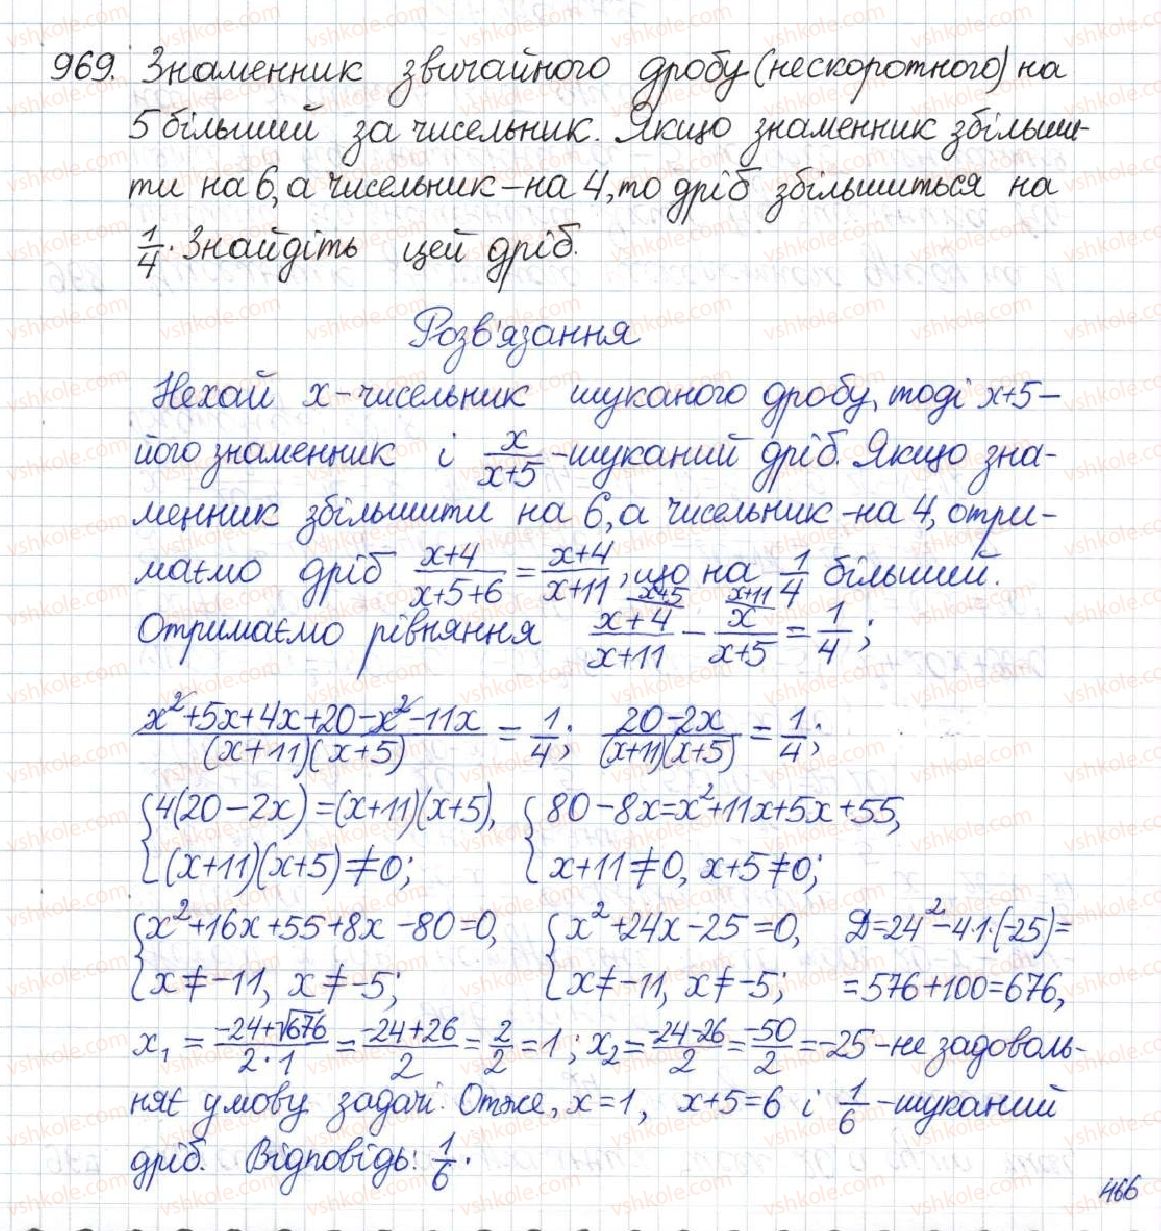 969. Знаменник звичайного дробу (нескоротного) на
5 більший за чисельник. Якщо знаменник збільши-
ти на 6, а чисельник – на 4, то дріб збільшиться на
1/4. Знайдіть цей дріб.
Розв'язання
Нехай x – чисельник шуканого дробу, тоді x+5 –
його знаменник і x/(x+5) - шуканий дріб. Якщо зна-
менник збільшити на 6, а чисельник - на 4, отри-
маємо дріб (x+4)/(x+5+6) = (x+4)/(x+11), що на 1/4 більший.
Отримаємо рівняння (x+4)/(x+11) ^(x+5) − x/(x+5) ^(x+11) = 1/4;
(x²+5x+4x+20−x²−11x)/((x+11)(x+5)) = 1/4; (20−2x)/((x+11)(x+5)) = 1/4;
{4(20−2x)=(x+11)(x+5), {80−8x=x²+11x+5x+55,
{(x+11)(x+5)≠0; {x+11≠0, x+5≠0;
{x²+16x+55+8x−80=0, {x²+24x−25=0, D=24²−4·1·(−25)=
{x≠−11, x≠−5; {x≠−11, x≠−5; =576+100=676,
x₁ = (−24+√676)/(2·1) = (−24+26)/2 = 2/2 = 1; x₂ = (−24−26)/2 = −50/2 = −25 – не задоволь-
няє умову задачі. Отже, x=1, x+5=6 і 1/6 - шуканий
дріб. Відповідь: 1/6.
466
vshkole.com